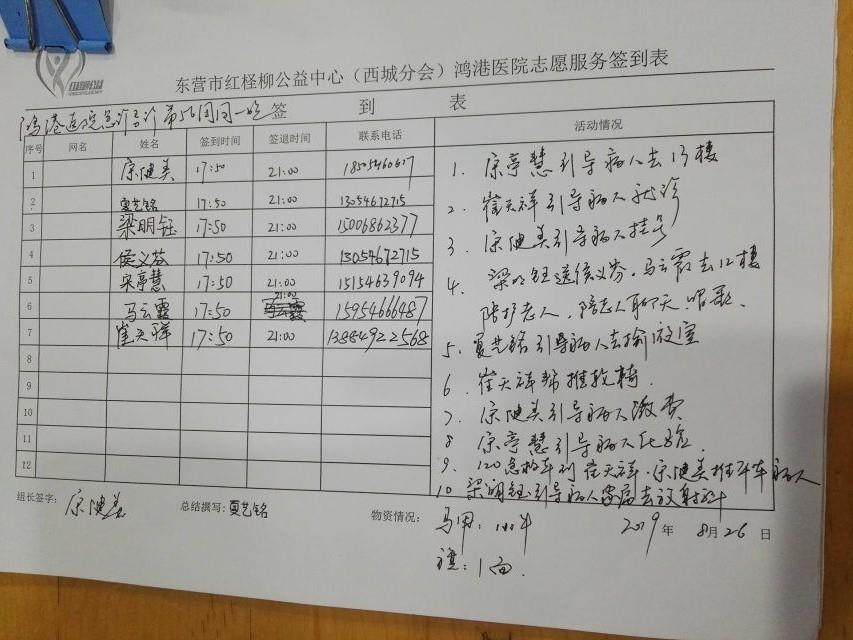 东营市红柽柳公益中心（西城分会）鸿港医院志愿服务签到表
鸿港医院急诊 第56周周一晚 签到表
序号 网名 姓名 签到时间 签退时间 联系电话 活动情况
1 宗健美 17:50 21:00
2 夏艺铭 17:50 21:00 13054672715
3 梁明钰 17:50 21:00 15006862377
4 侯义芬 17:50 21:00 13054672715
5 宗亭慧 17:50 21:00 15154639094
6 马云霞 17:50 21:00 15954666487
7 崔天祥 17:50 21:00 13884922568
8
9
10
11
12
1. 宗亭慧引导病人去13楼
2. 崔天祥引导病人就诊
3. 宗健美引导病人挂号
4. 梁明钰送侯义芬、马云霞去12楼
陪护老人，陪老人聊天、唱歌、
5. 夏艺铭引导病人去输液室
6. 崔天祥帮推轮椅.
7. 宗健美引导病人缴费
8 宗亭慧引导病人化验.
9. 120急救车到 崔天祥、宗健美推平车病人
10 梁明钰引导病人家属去放射科
组长签字: 宗健美 总结撰写: 夏艺铭 物资情况: 马甲: 2019年 8月26日
旗: 1面.